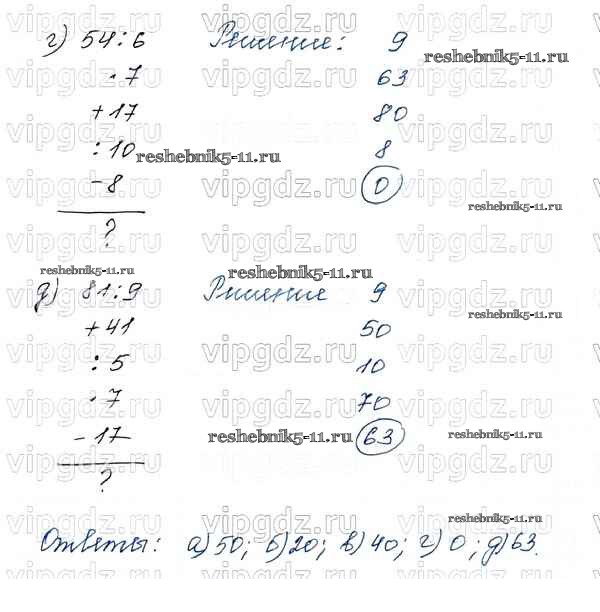 г) 54:6 Решение: 9
·7 63
+17 80
:10 8
-8 0
?
д) 81:9 Решение 9
+41 50
:5 10
·7 70
-17 63
?
Ответы: а) 50; б) 20; в) 40; г) 0; д) 63.
vipgdz.ru
reshebnik5-11.ru